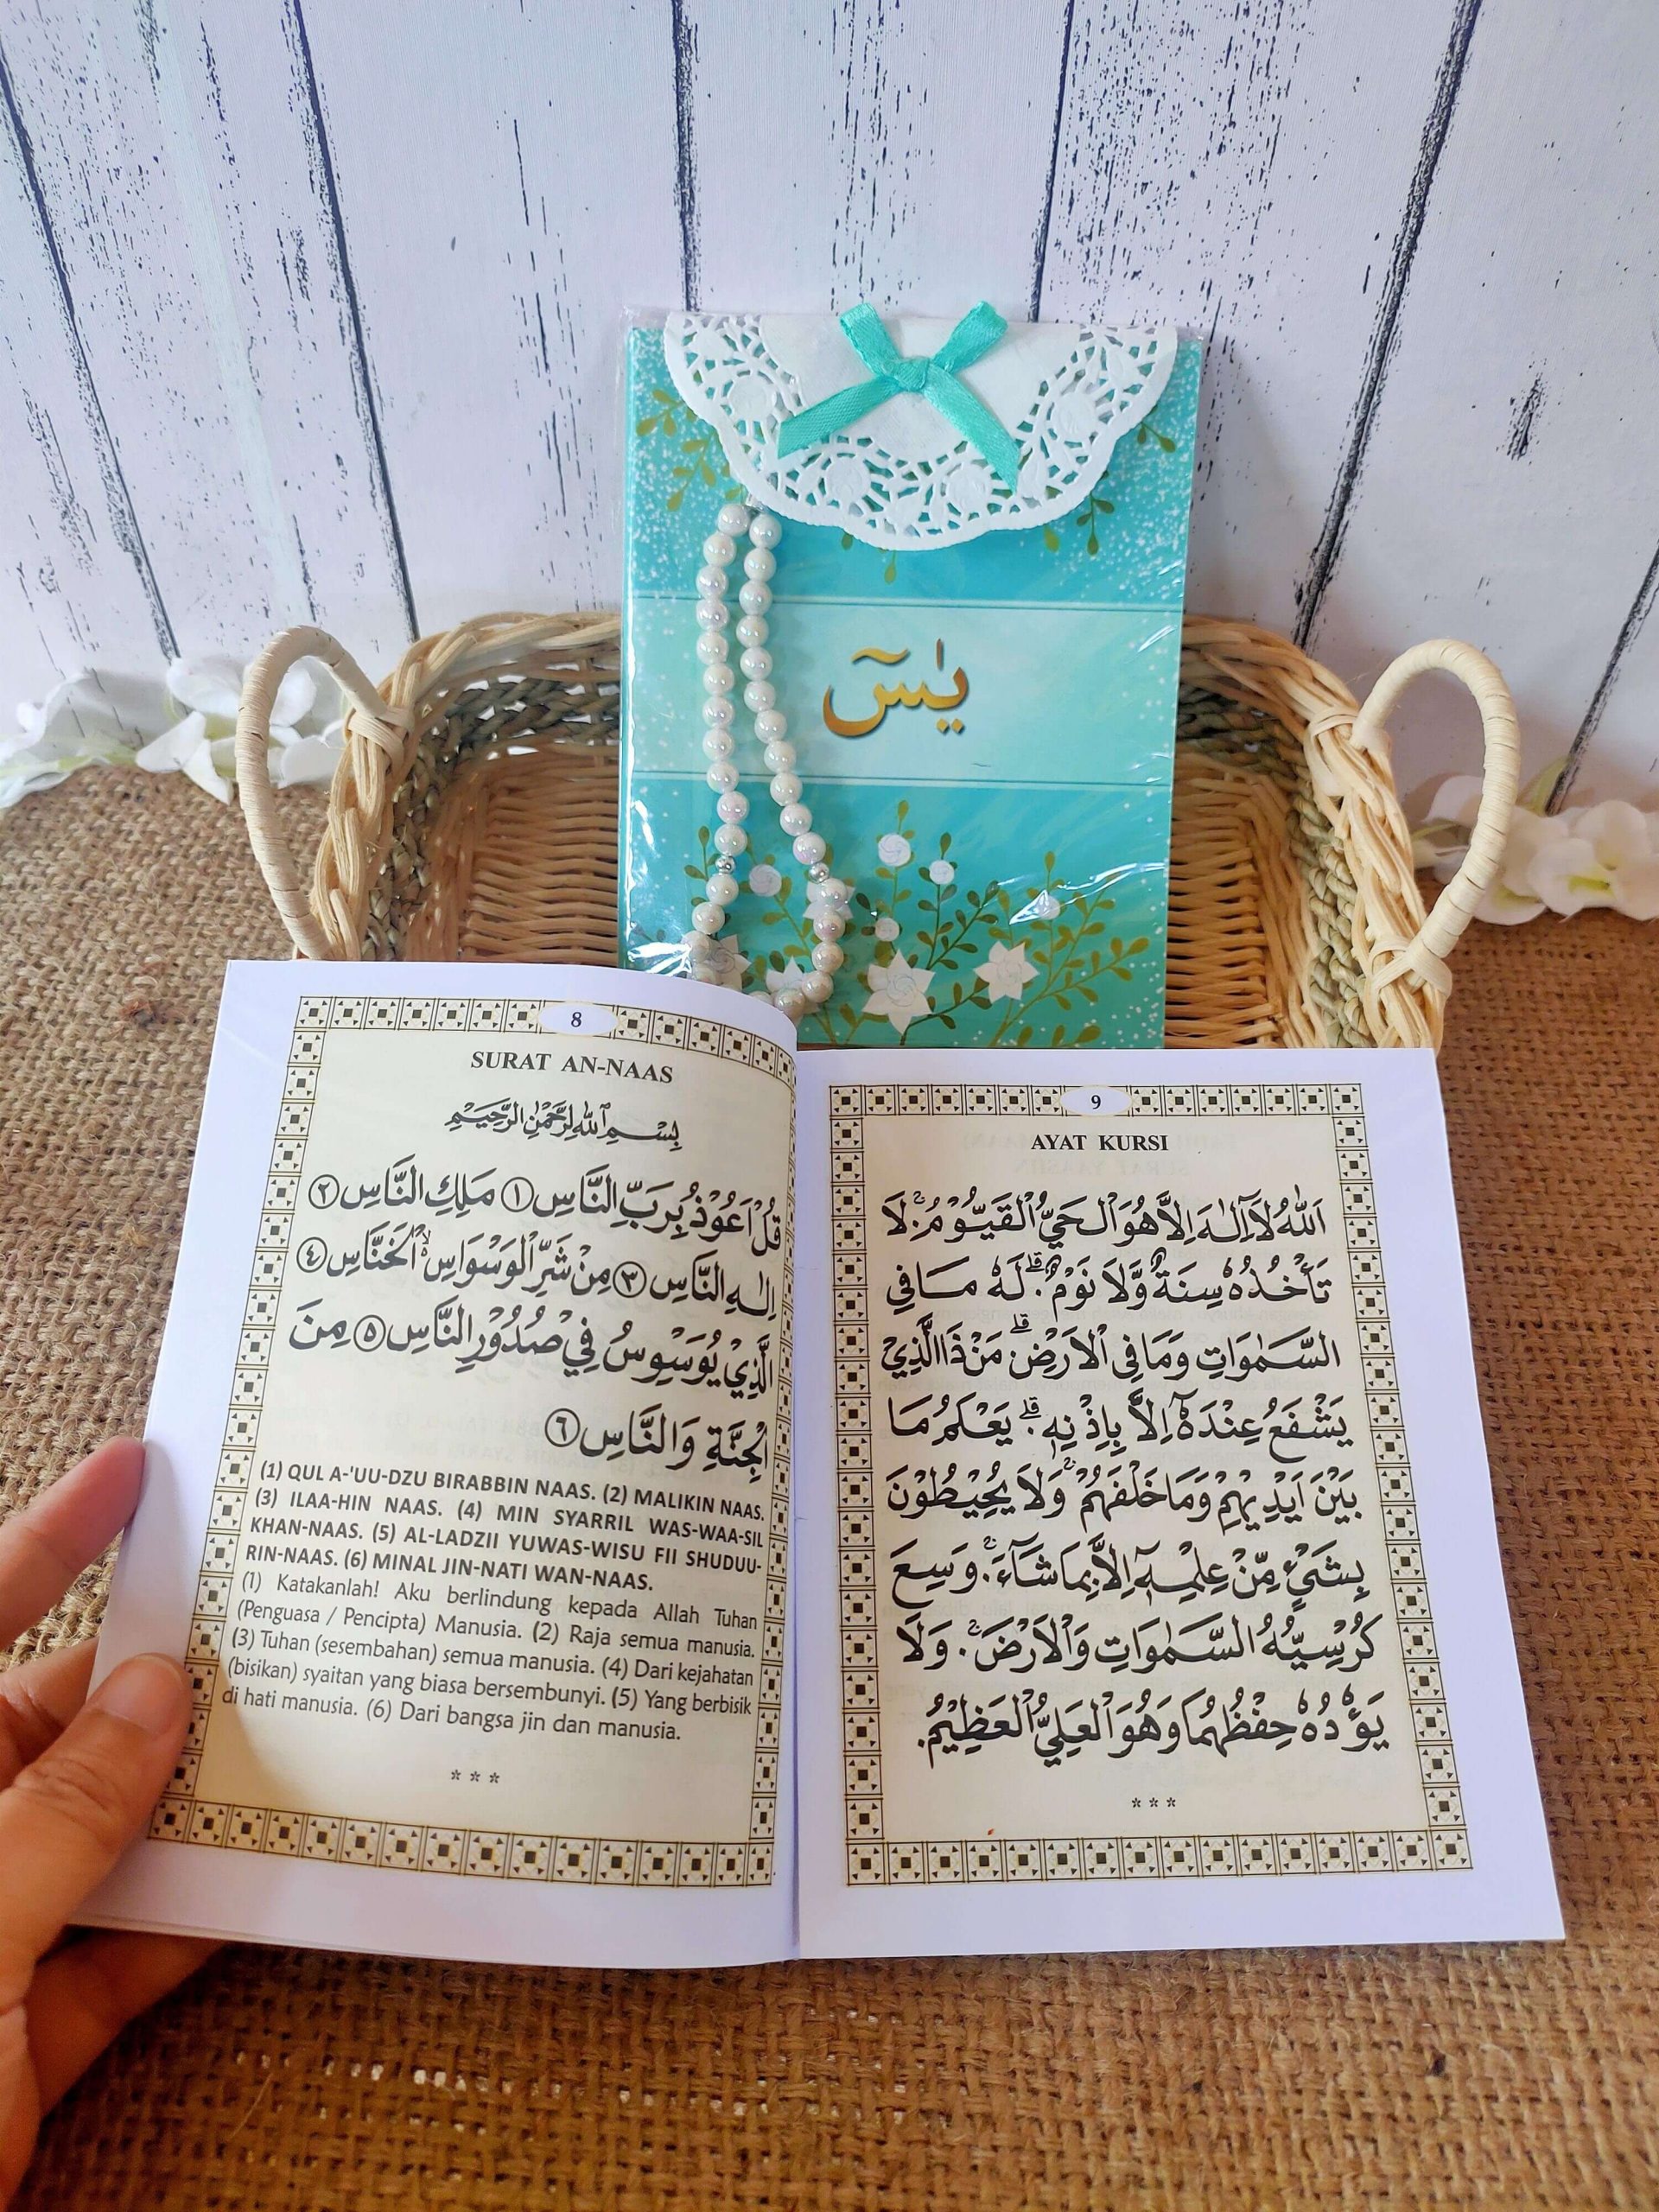 يٰسٓ
8
SURAT AN-NAAS
بِسْمِ ٱللّٰهِ الرَّحْمٰنِ الرَّحِيْمِ
قُلْ اَعُوْذُ بِرَبِّ النَّاسِ ١ مَلِكِ النَّاسِ ٢
اِلٰهِ النَّاسِ ٣ مِنْ شَرِّ الْوَسْوَاسِ ەۙ الْخَنَّاسِ ٤
الَّذِيْ يُوَسْوِسُ فِيْ صُدُوْرِ النَّاسِ ٥ مِنَ
الْجِنَّةِ وَالنَّاسِ ٦
(1) QUL A-'UU-DZU BIRABBIN NAAS. (2) MALIKIN NAAS.
(3) ILAA-HIN NAAS. (4) MIN SYARRIL WAS-WAA-SIL
KHAN-NAAS. (5) AL-LADZII YUWAS-WISU FII SHUDUU-
RIN-NAAS. (6) MINAL JIN-NATI WAN-NAAS.
(1) Katakanlah! Aku berlindung kepada Allah Tuhan
(Penguasa / Pencipta) Manusia. (2) Raja semua manusia.
(3) Tuhan (sesembahan) semua manusia. (4) Dari kejahatan
(bisikan) syaitan yang biasa bersembunyi. (5) Yang berbisik
di hati manusia. (6) Dari bangsa jin dan manusia.
* * *
9
AYAT KURSI
اَللّٰهُ لَآ اِلٰهَ اِلَّا هُوَ الْحَيُّ الْقَيُّوْمُ ۚ. لَا
تَأْخُذُهٗ سِنَةٌ وَّلَا نَوْمٌ ۗ. لَهٗ مَا فِي
السَّمٰوَاتِ وَمَا فِى الْاَرْضِ ۗ مَنْ ذَا الَّذِيْ
يَشْفَعُ عِنْدَهٗٓ اِلَّا بِاِذْنِهٖ ۗ. يَعْلَمُ مَا
بَيْنَ اَيْدِيْهِمْ وَمَا خَلْفَهُمْ ۚ وَلَا يُحِيْطُوْنَ
بِشَيْءٍ مِّنْ عِلْمِهٖٓ اِلَّا بِمَا شَآءَ ۚ. وَسِعَ
كُرْسِيُّهُ السَّمٰوَاتِ وَالْاَرْضَ ۚ. وَلَا
يَؤُدُهٗ حِفْظُهُمَا وَهُوَ الْعَلِيُّ الْعَظِيْمُ.
* * *